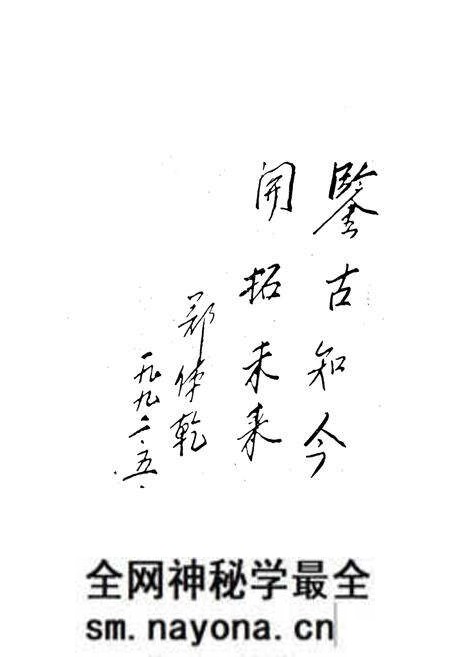 鑒古知今
開拓未来
郑体乾
一九九二.五.
全网神秘学最全
sm.nayona.cn